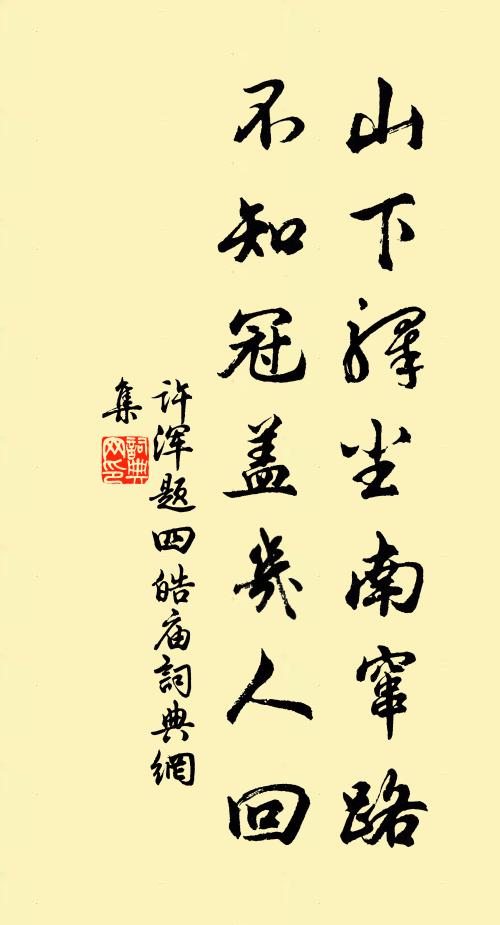 山下驛尘南窜路
不知冠盖幾人回
许浑题四皓庙詞典網
集
詞典
网印